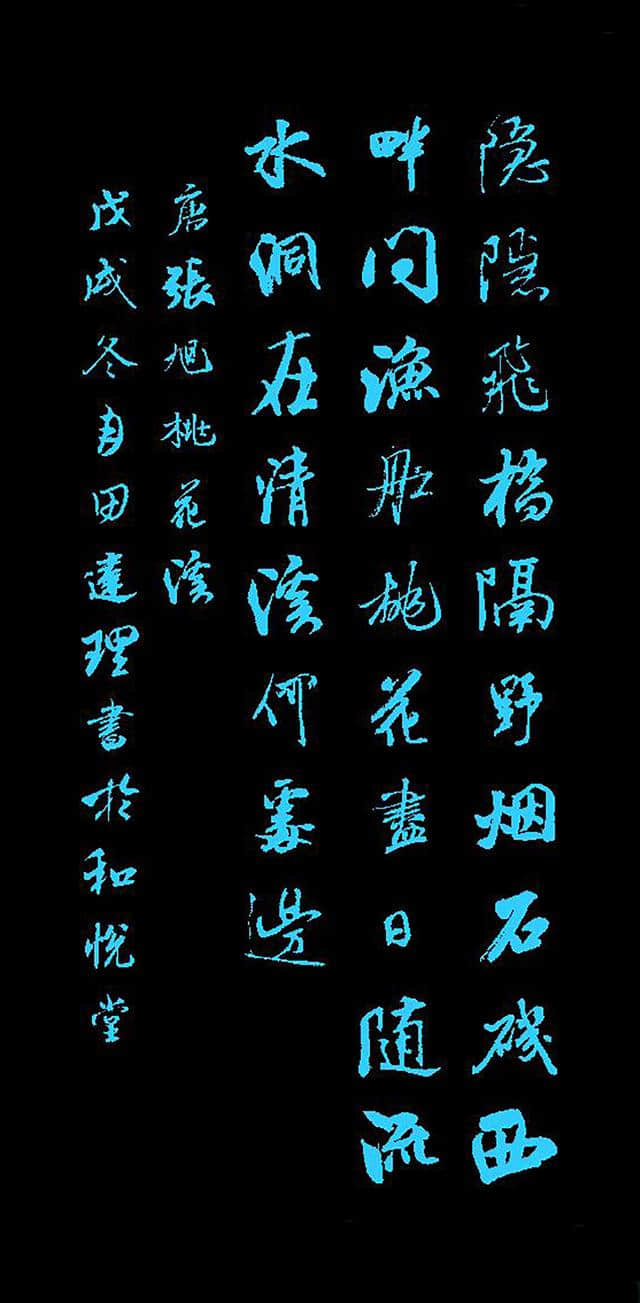 隐隱飛橋隔野烟石磯西
畔问漁船桃花盡日随流
水洞在清溪何處邊
唐張旭桃花溪
戊戌冬月田達理書於和悦堂